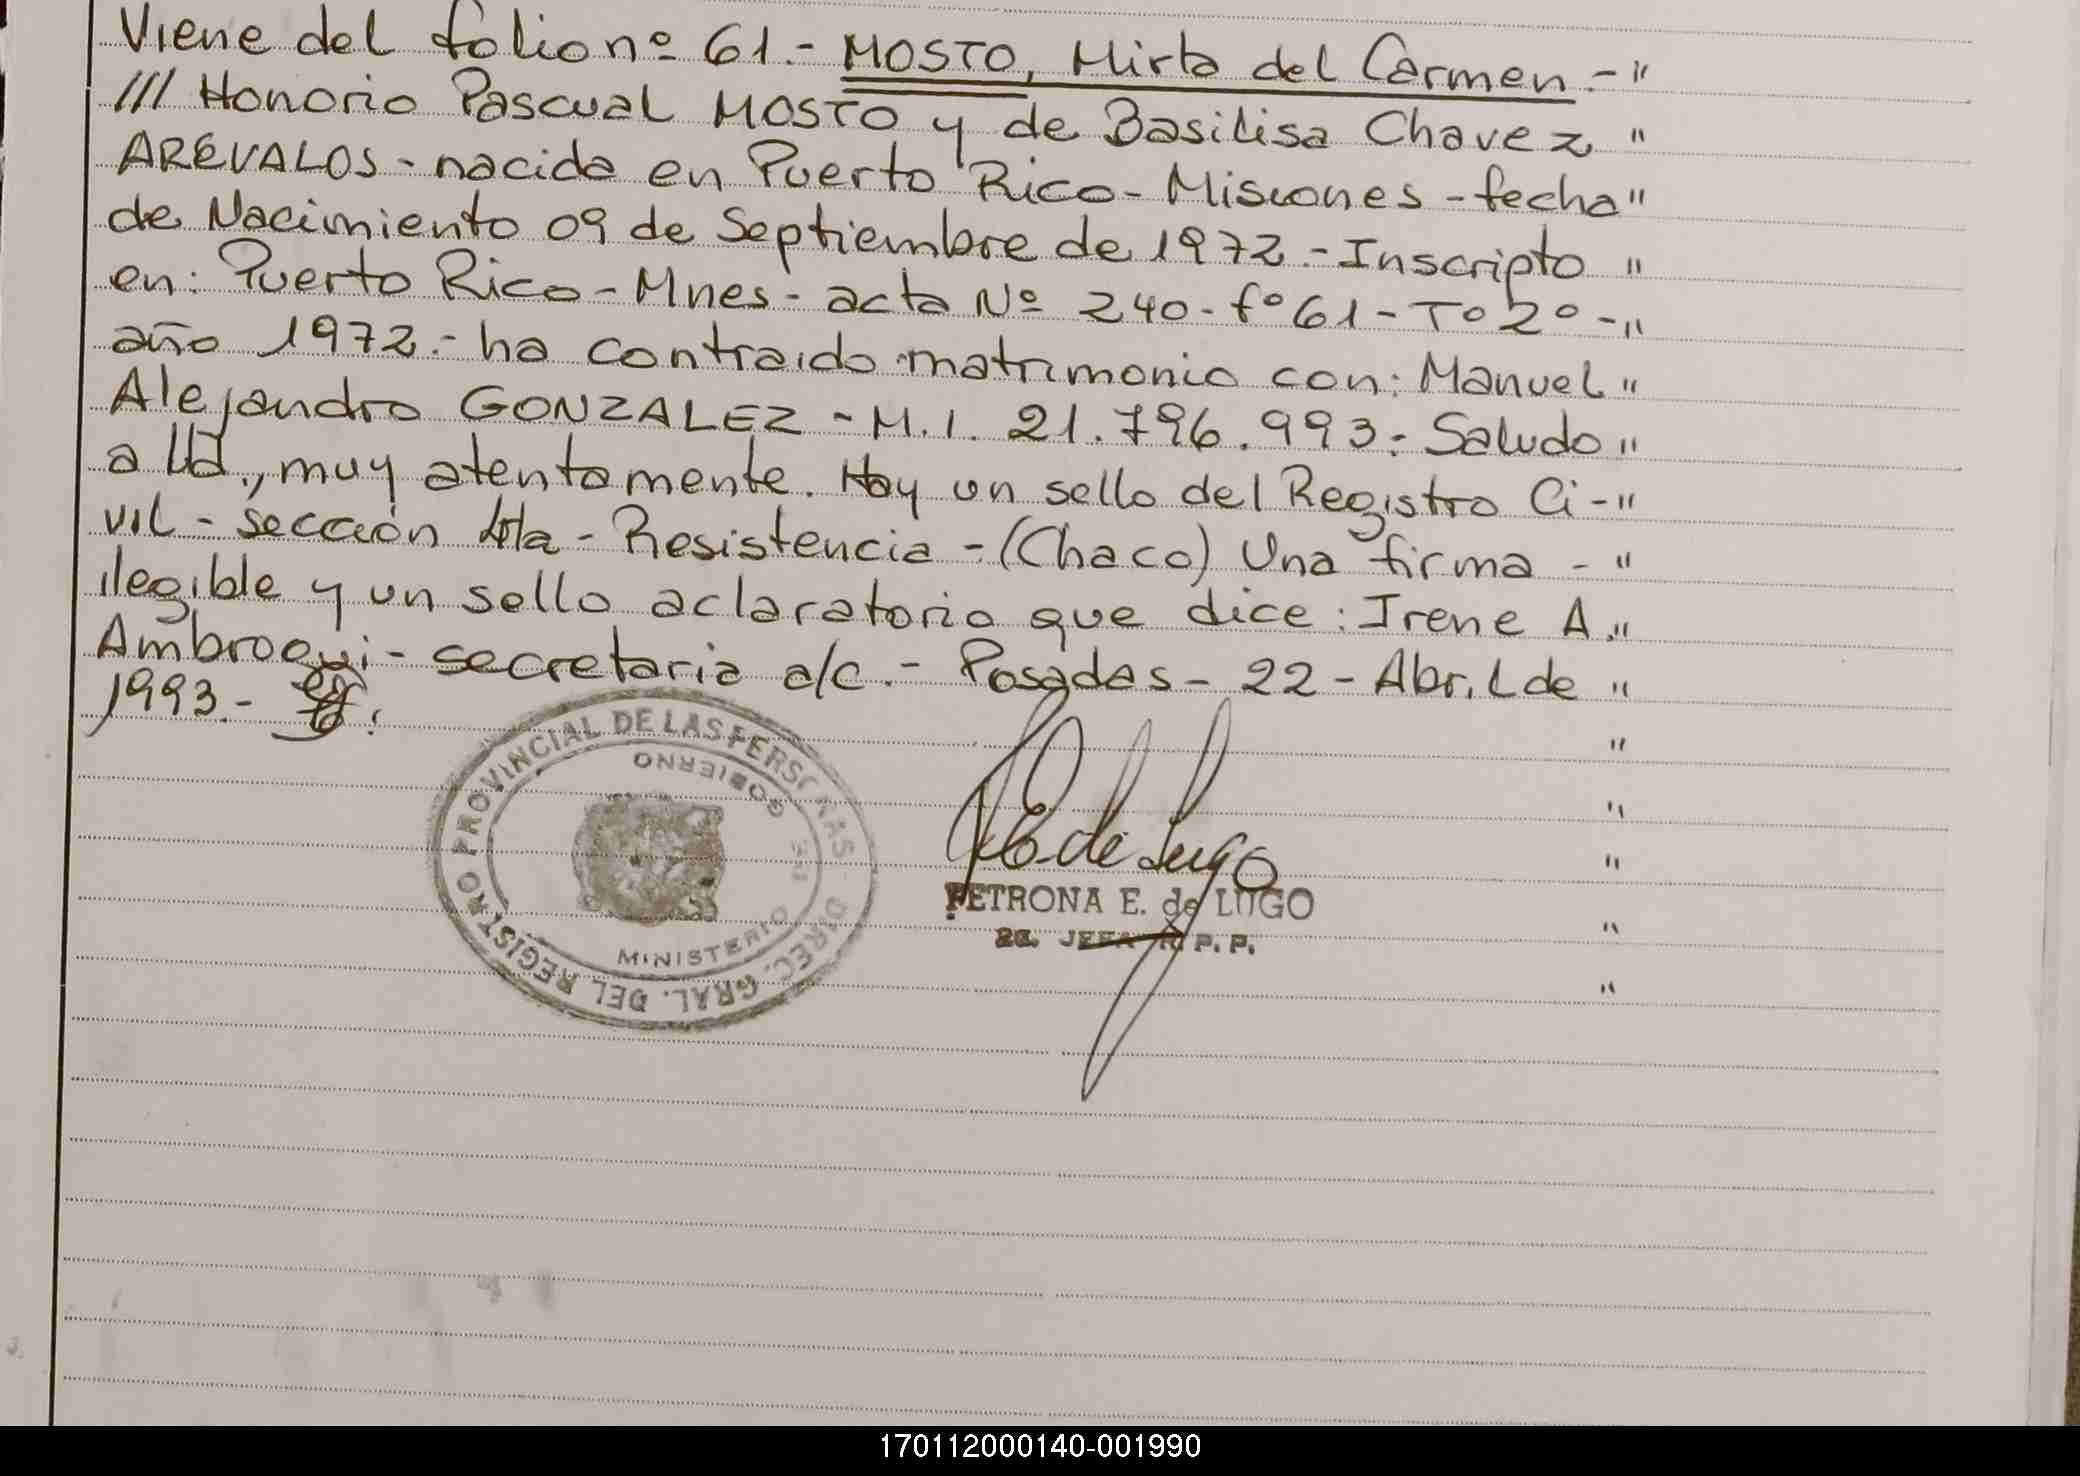 Viene del folio nº 61.- MOSTO, Mirta del Carmen - "
/// Honorio Pascual MOSTO y de Basilisa Chavez "
AREVALOS - nacida en Puerto Rico - Misiones - fecha "
de Nacimiento 09 de Septiembre de 1972 - Inscripto "
en: Puerto Rico - Mnes - acta Nº 240 - fº 61 - Tº 2º - "
año 1972.- ha contraido matrimonio con: Manuel "
Alejandro GONZALEZ - M.I. 21.796.993.- Saludo "
a Ud., muy atentamente. Hay un sello del Registro Ci- "
vil - sección 4ta - Resistencia - (Chaco) Una firma - "
ilegible y un sello aclaratorio que dice: Irene A. "
Ambroggi - secretaria a/c. - Posadas - 22 - Abril de "
1993.-
"
"
"
"
"
DIREC. GRAL. DEL REGISTRO PROVINCIAL DE LAS PERSONAS
MINISTERIO DE GOBIERNO
P. E. de Lugo
PETRONA E. de LUGO
JEFA R. P. P.
170112000140-001990